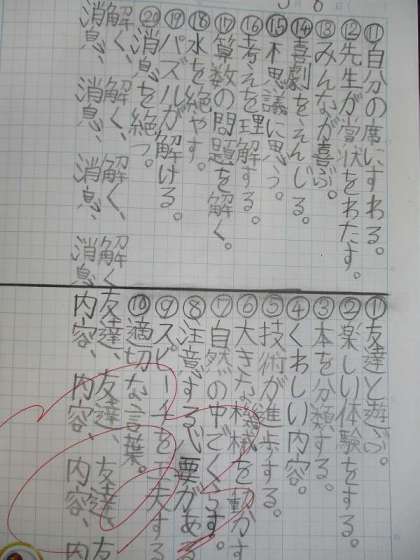 ⑪自分の席にすわる。
⑫先生が賞状をわたす。
⑬みんなが喜ぶ。
⑭喜劇をえんじる。
⑮不思議に思う。
⑯考えを理解する。
⑰算数の問題を解く。
⑱水を絶やす。
⑲パズルが解ける。
⑳消息を絶つ。
解く、解く、解く、解く
消息、消息、消息、消息
①友達と遊ぶ。
②楽しい体験をする。
③本を分類する。
④くわしい内容。
⑤技術が進歩する。
⑥大きな機械を動かす
⑦自然の中でくらす。
⑧注意する必要がある
⑨スピーチを工夫する
⑩適切な言葉。
友達、友達、友達、友
内容、内容、内容、内